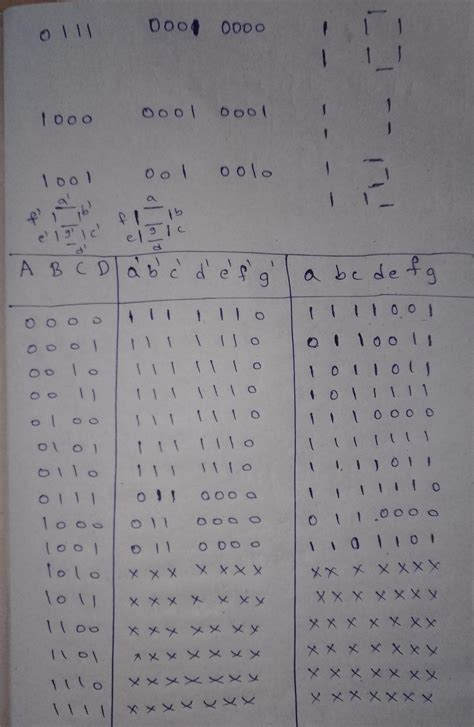 0111 0001 0000
1000 0001 0001
1001 001 0010
a' a
f' b' f b
e' g' c' e g c
d' d
A B C D a' b' c' d' e' f' g' a b c d e f g
0000 111 1110 1111001
0001 111 1110 0110011
0010 111 1110 1011011
0011 111 1110 1011111
0100 111 1110 1110000
0101 111 1110 1111111
0110 111 1110 1111011
0111 011 0000 1111110
1000 011 0000 011.0000
1001 011 0000 1101101
1010 xxx xxxx xx x xxxx
1011 xxx xxxx xxx xxxx
1100 xxx xxxx xxx xxxx
1101 xxx xxxx xxx xxxx
1110 xxx xxxx xxx xxxx
1111 xxx xxxx xxx xxxx